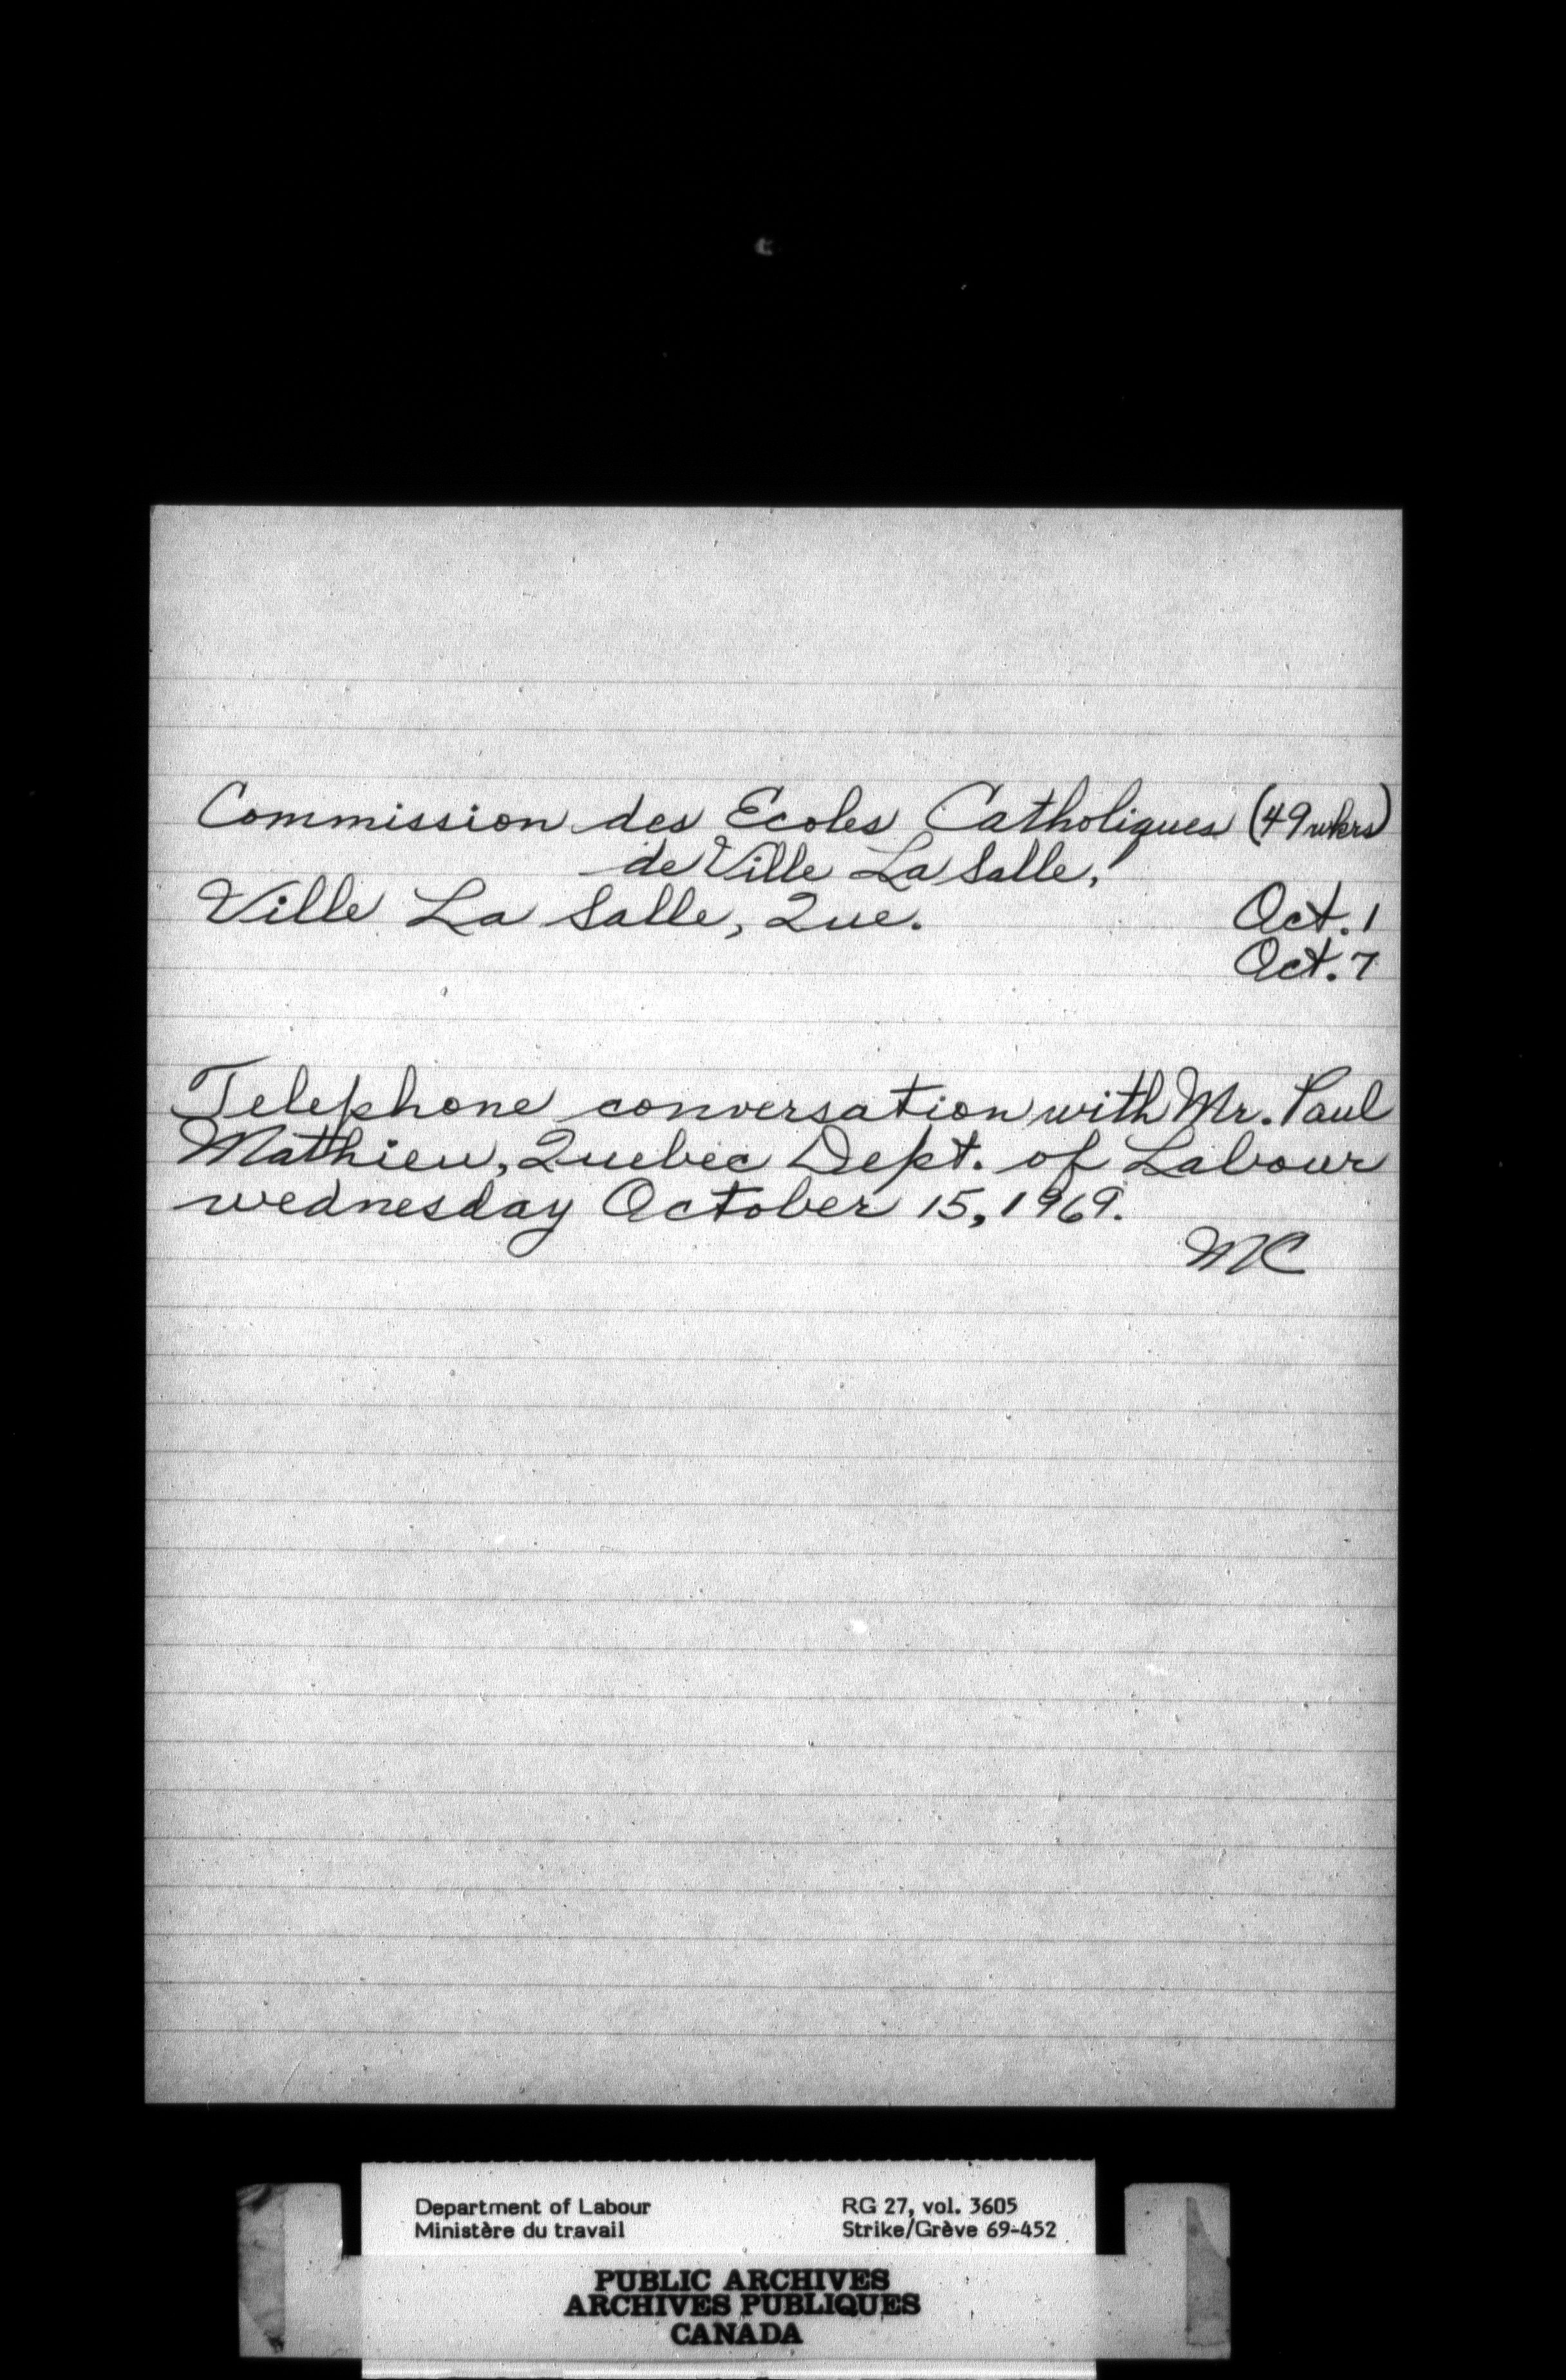 Commission des Ecoles Catholiques (49 wkrs)
de Ville La Salle,
Ville La Salle, Que. Oct. 1
Oct. 7
Telephone conversation with Mr. Paul
Mathieu, Quebec Dept. of Labour
wednesday October 15, 1969.
MC
Department of Labour RG 27, vol. 3605
Ministère du travail Strike/Grève 69-452
PUBLIC ARCHIVES
ARCHIVES PUBLIQUES
CANADA